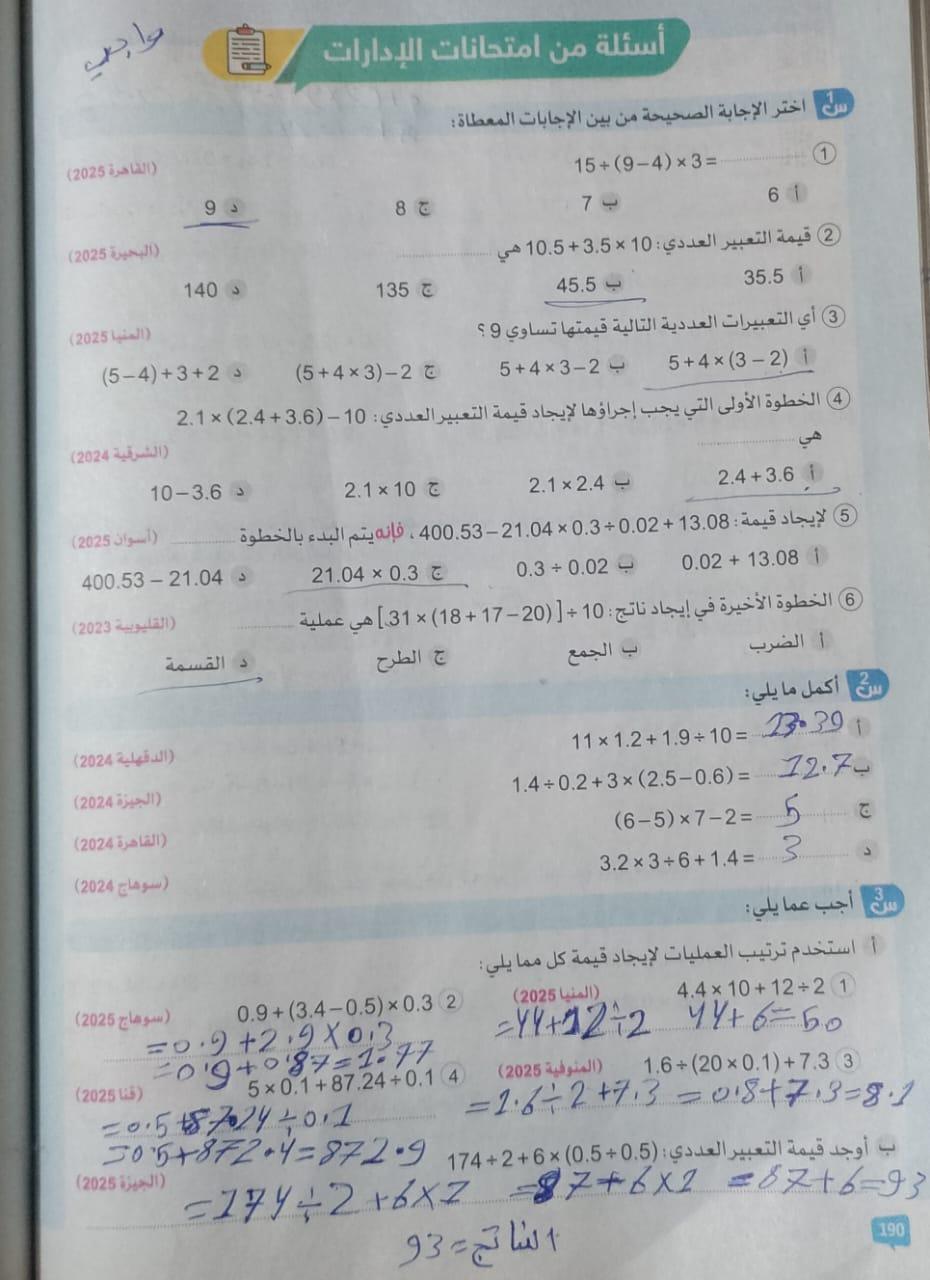 واجب
أسئلة من امتحانات الإدارات
س1 اختر الإجابة الصحيحة من بين الإجابات المعطاة:
① 15 ÷ (9 – 4) × 3 = ............ (القاهرة 2025)
أ 6 ب 7 ج 8 د 9
② قيمة التعبير العددي: 10.5 + 3.5 × 10 هي ............ (البحيرة 2025)
أ 35.5 ب 45.5 ج 135 د 140
③ أي التعبيرات العددية التالية قيمتها تساوي 9 ؟ (المنيا 2025)
أ 5 + 4 × (3 – 2) ب 5 + 4 × 3 – 2 ج (5 + 4 × 3) – 2 د (5 – 4) + 3 + 2
④ الخطوة الأولى التي يجب إجراؤها لإيجاد قيمة التعبير العددي: 2.1 × (2.4 + 3.6) – 10
هي ............ (الشرقية 2024)
أ 2.4 + 3.6 ب 2.1 × 2.4 ج 2.1 × 10 د 10 – 3.6
⑤ لإيجاد قيمة: 400.53 – 21.04 × 0.3 ÷ 0.02 + 13.08 ، فإنه يتم البدء بالخطوة ............ (أسوان 2025)
أ 0.02 + 13.08 ب 0.3 ÷ 0.02 ج 21.04 × 0.3 د 400.53 – 21.04
⑥ الخطوة الأخيرة في إيجاد ناتج: [31 × (18 + 17 – 20)] ÷ 10 هي عملية ............ (القليوبية 2023)
أ الضرب ب الجمع ج الطرح د القسمة
س2 أكمل ما يلي:
أ 11 × 1.2 + 1.9 ÷ 10 = 13.39 (الدقهلية 2024)
ب 1.4 ÷ 0.2 + 3 × (2.5 – 0.6) = 12.7 (الجيزة 2024)
ج (6 – 5) × 7 – 2 = 5 (القاهرة 2024)
د 3.2 × 3 ÷ 6 + 1.4 = 3 (سوهاج 2024)
س3 أجب عما يلي:
أ استخدم ترتيب العمليات لإيجاد قيمة كل مما يلي:
① 4.4 × 10 + 12 ÷ 2 (المنيا 2025) ② 0.9 + (3.4 – 0.5) × 0.3 (سوهاج 2025)
=44+12÷2 44+6=50
=0.9+2.9×0.3
=0.9+0.87=1.77
③ 1.6 ÷ (20 × 0.1) + 7.3 (المنوفية 2025) ④ 5 × 0.1 + 87.24 ÷ 0.1 (قنا 2025)
=1.6÷2+7.3 =0.8+7.3=8.1
=0.5+87.24÷0.1
=0.5+872.4=872.9
ب أوجد قيمة التعبير العددي: 174 ÷ 2 + 6 × (0.5 ÷ 0.5) (الجيزة 2025)
=174÷2+6×1 =87+6×1 =87+6=93
الناتج=93
190